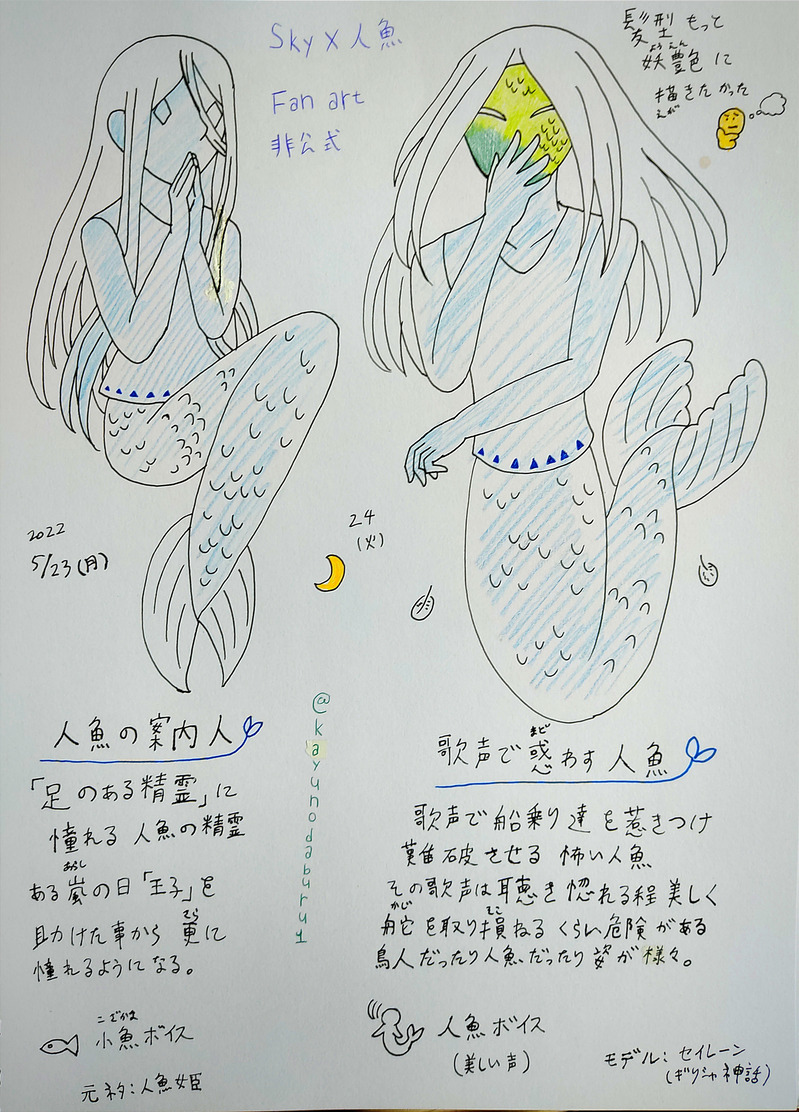 Sky×人魚
Fan art
非公式
髪型もっと
妖艶色に
ようえん
描きたかった
えが
2022
5/23(月)
24
(火)
@kayunodaburu1
人魚の案内人
「足のある精霊」に
憧れる人魚の精霊
あらし
ある嵐の日「王子」を
助けた事から更に
さら
憧れるようになる。
こざかな
小魚ボイス
元ネタ:人魚姫
まど
歌声で惑わす人魚
歌声で船乗り達を惹きつけ
難破させる怖い人魚
その歌声は聴き惚れる程美しく
かじ
そこ
舵を取り損ねるくらい危険がある
鳥人だったり人魚だったり姿が様々。
人魚ボイス
(美しい声)
モデル:セイレーン
(ギリシャ神話)